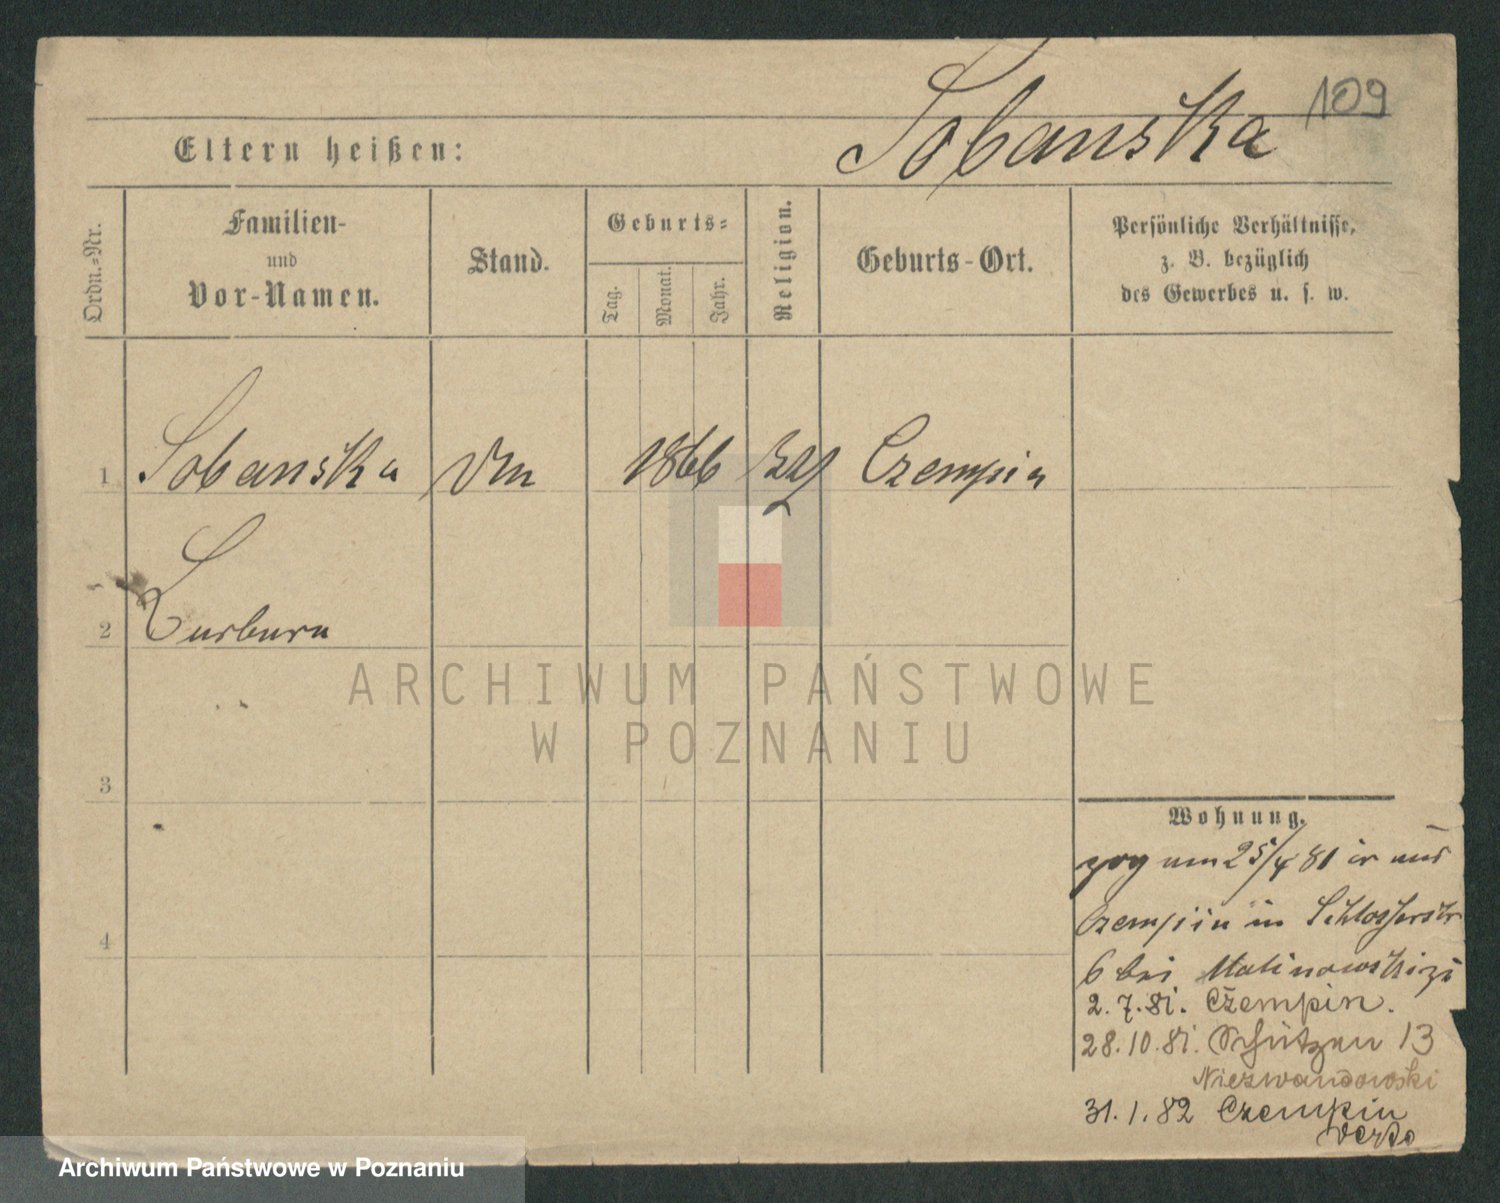 109
Sobanska
Eltern heißen:
Ordn.-Nr.
Familien-
und
Vor-Namen.
Stand.
Geburts-
Tag.
Monat.
Jahr.
Religion.
Geburts-Ort.
Persönliche Verhältnisse,
z. B. bezüglich
des Gewerbes u. s. w.
1 Sobanska 1866 Czempin
2
3
4
Wohnung.
zog am 25/4 81 aus
Czempin in Schlosserstr
6 bei Malinowski
2.7.81. Czempin.
28.10.81. Schützen 13
Niezwandowski
31.1.82 Czempin
ARCHIWUM PAŃSTWOWE
W POZNANIU
Archiwum Państwowe w Poznaniu